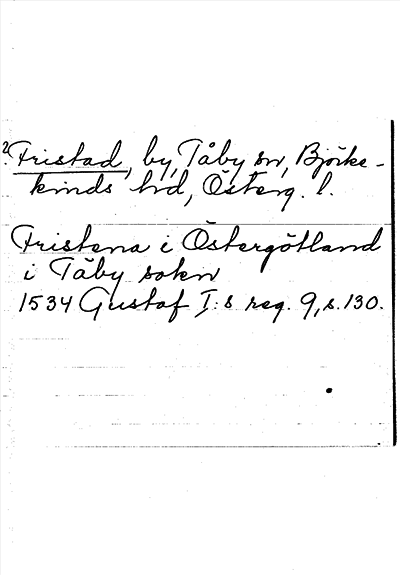 2 Fristad, by, Tåby sn, Björke-
kinds hd, Österg. l.
Fristena i Östergötland
i Tåby sokn
1534 Gustaf I:s reg. 9, s. 130.